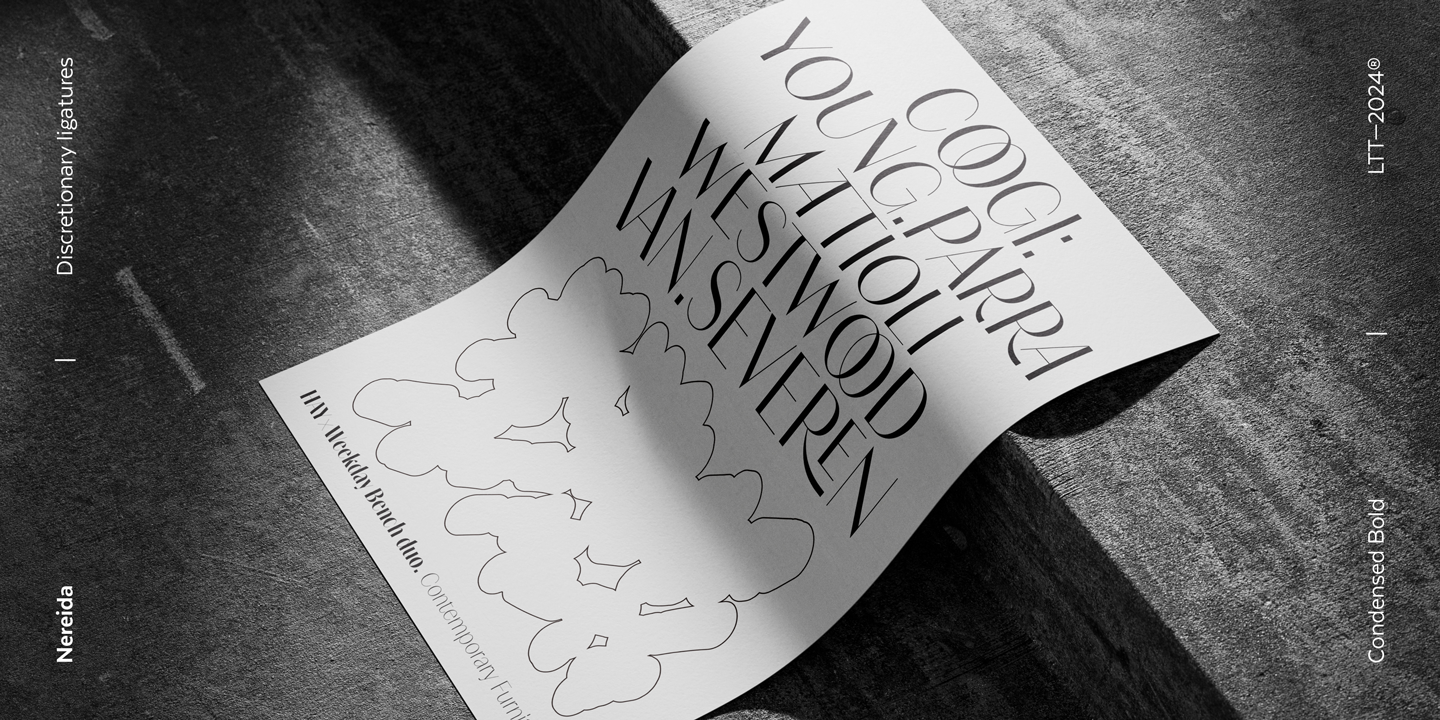 Discretionary ligatures
|
Nereida
COOGI.
YOUNG.PARRA
MATTIOLI
WESTWOOD
VAN.SEVEREN
HAY x Weekday Bench duo. Contemporary Furni
LTT—2024®
|
Condensed Bold